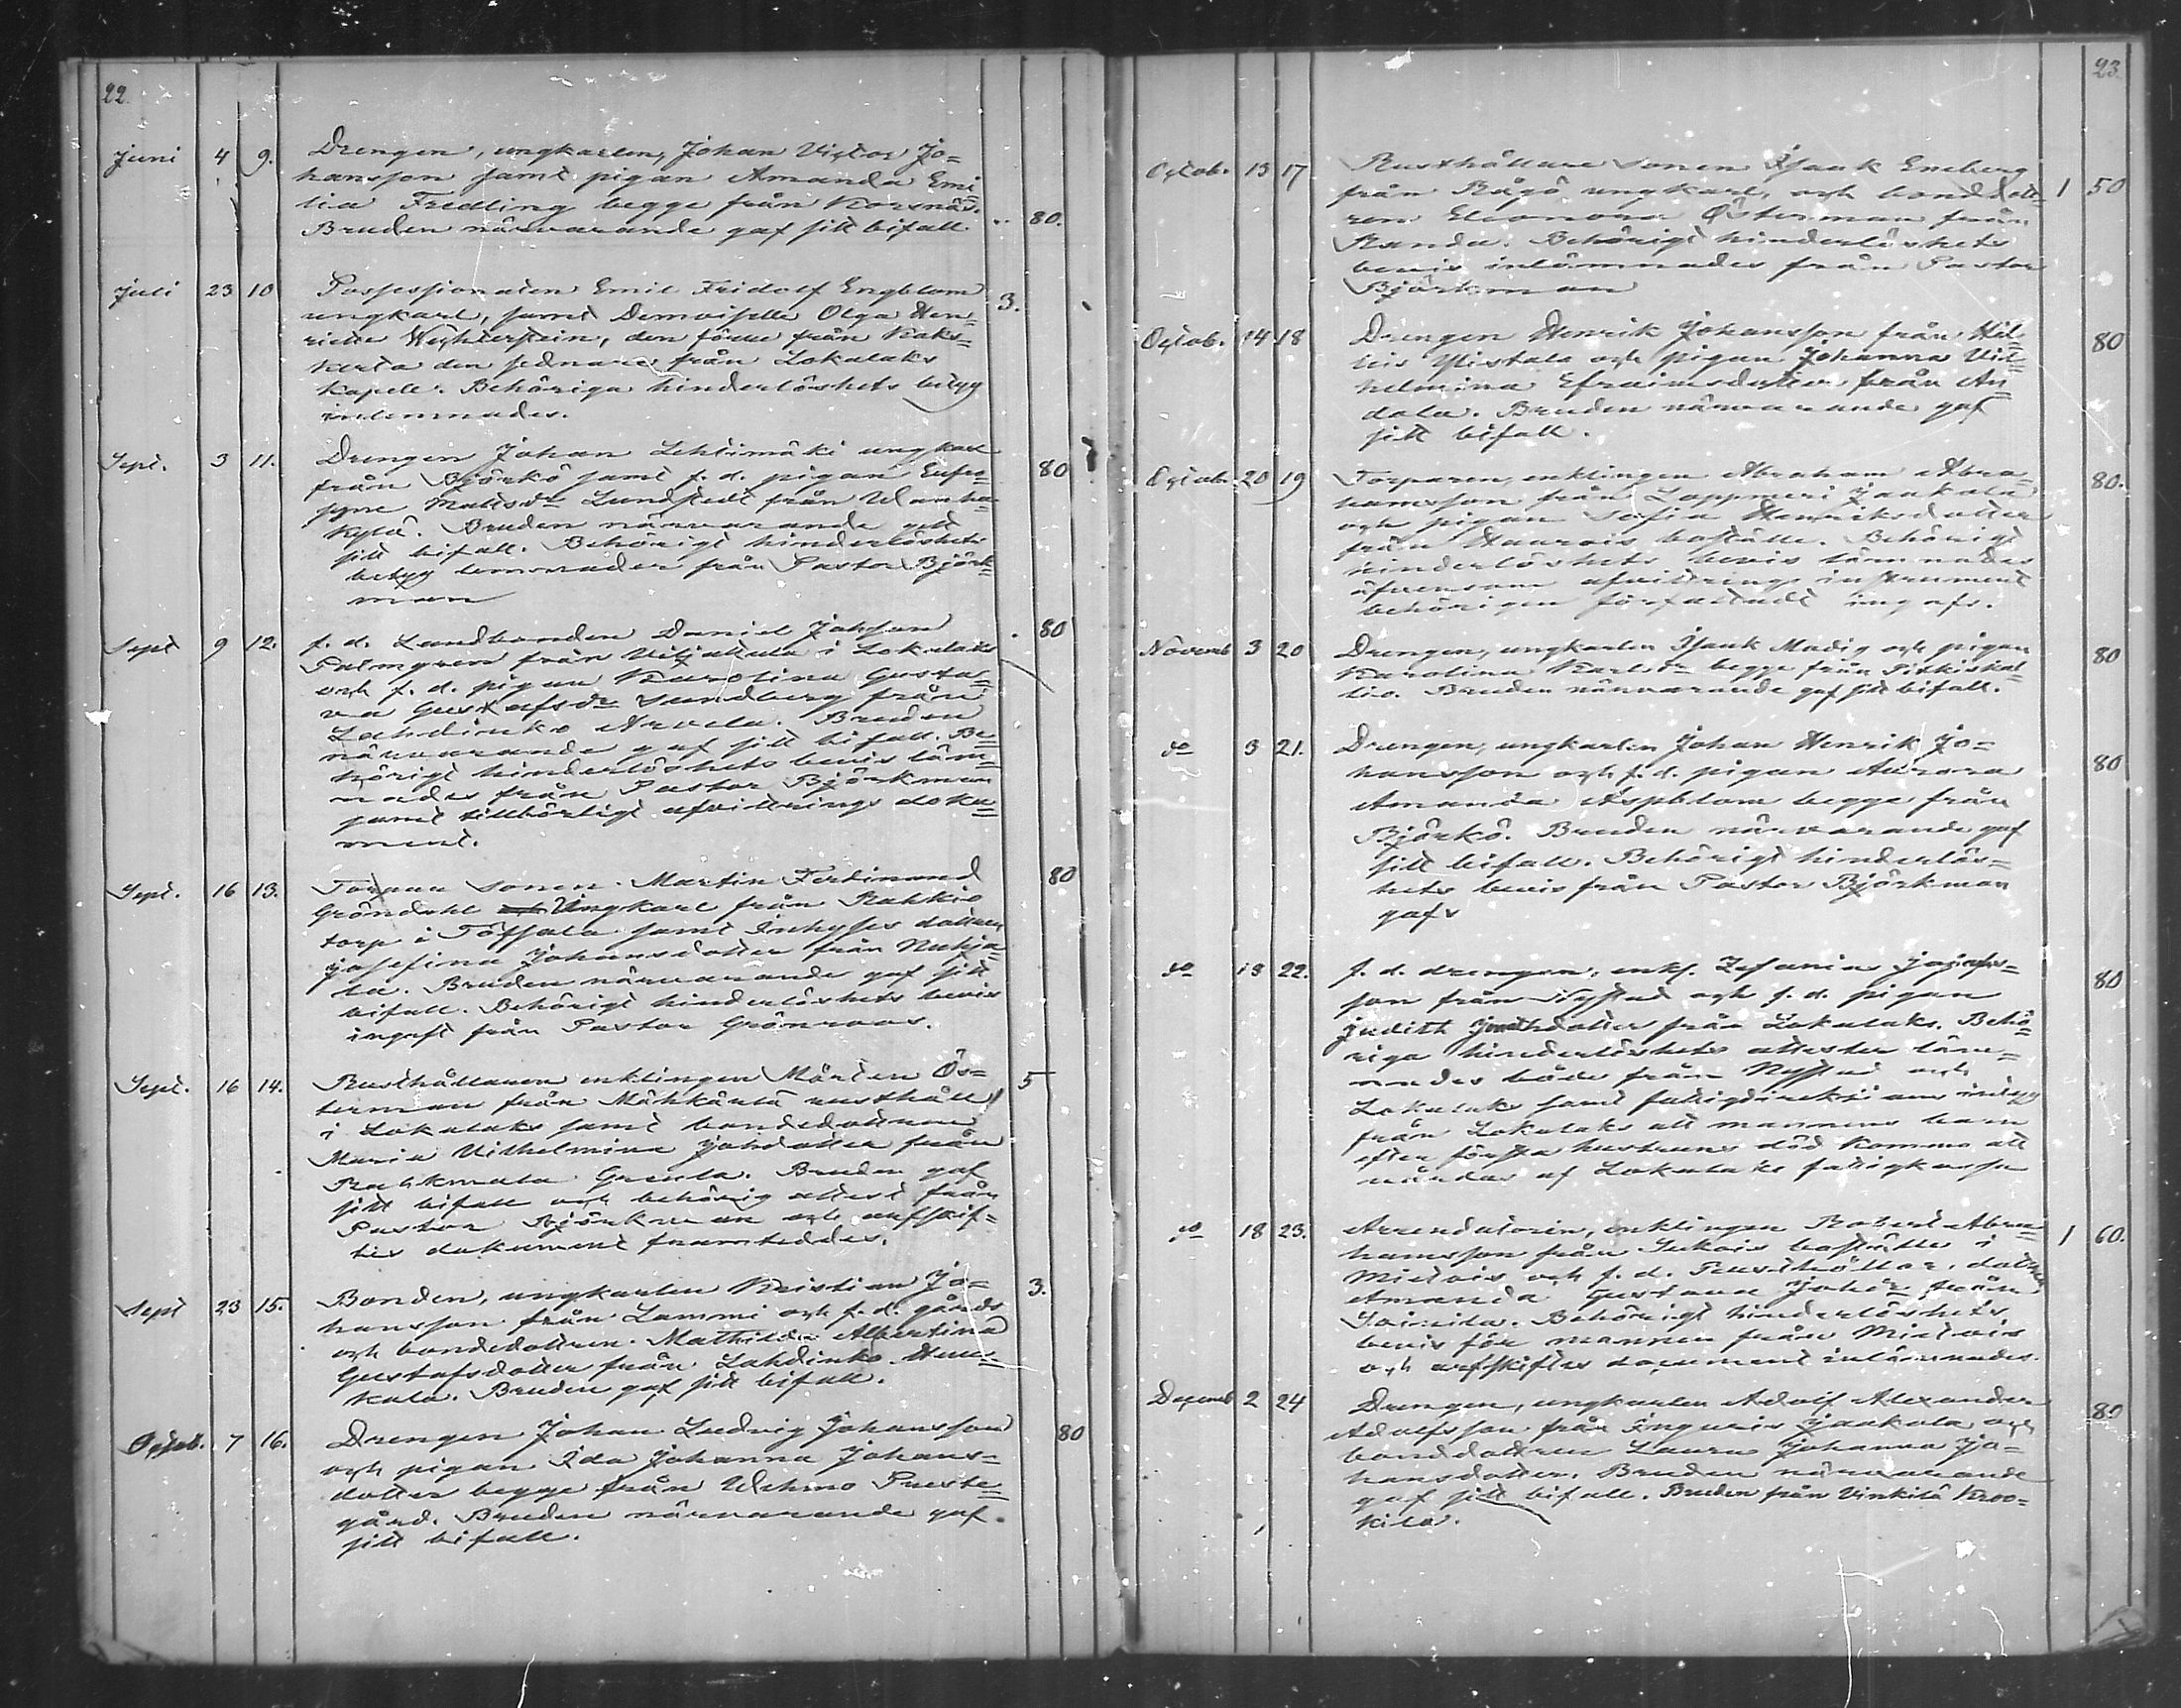 22.
Juni 4 9. Drengen, ungkarlen, Johan Victor Jo=
hansson samt pigan Amanda Emi
lia Fredling begge från Korsnäs.
Bruden närvarande gaf sitt bifall. .. 80.
Juli 23 10 Possessionaten Emil Fridolf Engblom 3.
ungkarl, samt Demoiselle Olga Hen=
riette Wächterstein, den förre från Kaks=
kerta den sednare från Lokalaks
Kapell. Behöriga hinderlöshets betyg
inlemnades.
Sept. 3 11. Drengen Johan Lehtimäki ungkarl 80
från Björkö samt f. d. pigan Eufro=
syne Mattsdr Lundstedt från
kylä. Bruden närvarande gett
sitt bifall. Behörigt hinderlöshets
betyg lemnades från Pastor Björk=
man
Sept 9 12. f. d. Landbonden Daniel Johsson . 80
Palmgren från i Lokalaks
och f. d. pigan Karolina Gusta=
va Gustafsdr Sundberg från
Lahdinko Arvela. Bruden
närvarande gaf sitt bifall. Be=
hörigt hinderlöshets bevis läm=
nades från Pastor Björkman
samt tillbörligt afvittrings doku=
ment.
Sept. 16 13. Torpare sonen Martin Ferdinand 80
Gröndahl Ungkarl från Rahkio
torp i Töfsala samt Inhyses dottren
Josefina Johansdotter från Nuhja=
la. Bruden närvarande gaf sitt
bifall. Behörigt hinderlöshets bevis
ingaft från Pastor Grönroos.
Sept. 16 14. Rusthållaren enklingen Mårten Ös= 5
terman från Mähkärlä rusthåll
i Lokalaks samt bondedottren
Maria Vilhelmina Johsdotter från
Rahkmala Greula. Bruden gaf
sitt bifall och behörig attest från
Pastor Björkman och arfskif=
tes dokument framteddes.
Sept 23 15. Bonden, ungkarlen Kristian Jo= 3.
hansson från Lammi och f. d. gårds
och bondedottren Mathilda Albertina
Gustafsdotter från Lahdinko
kala. Bruden gaf sitt bifall.
Octob. 7 16. Drengen Johan Ludvig Johansson 80
och pigan Ida Johanna Johans=
dotter begge från Wehmo Preste=
gård. Bruden närvarande gaf
sitt bifall.
23.
Octob. 13 17 Rusthållare sonen Isaak Eneberg
från Rågö ungkarl, och bonddott= 1 50
ren Eleonora Österman från
Randa. Behörigt hinderlöshets
bevis inlämnades från Pastor
Björkman
Octob. 14 18 Drengen Henrik Johansson från Hil= 80
lis Ylistalo och pigan Johanna Vil=
helmina Efraimsdotter från An
dala. Bruden närvarande gaf
sitt bifall.
Octob. 20 19 Torparen, enklingen Abraham Abra= 80.
hamsson från Lappmeri Jaakola
och pigan Sofia Henriksdotter
från Haarois boställe. Behörigt
hinderlöshets bevis lämnades
äfvensom afvittrings instrument
behörigen författadt ingafs.
Novemb 3 20 Drengen, ungkarlen Isaak Madig och pigan 80
Karolina Karlsdr begge från Pitkiskal=
lio. Bruden närvarande gaf sitt bifall.
do 3 21. Drengen, ungkarlen Johan Henrik Jo=
hansson och f. d. pigan Aurora 80
Amanda Aspblom begge från
Björkö. Bruden närvarande gaf
sitt bifall. Behörigt hinderlös=
hets bevis från Pastor Björkman
gafs
do 18 22. f. d. drengen, enkl. Zefanias Josefs= 80
son från Nystad och f. d. pigan
Judith från Lokalaks. Behö=
riga hinderlöshets attester läm=
nades både från Nystad och
Lokalaks samt fattigdirektionens intyg
från Lokalaks att mannens barn
efter första hustruns död kommo att
vårdas af Lokalaks fattigkassa
do 18 23. Arrendatorn, enklingen Robert Abra= 1 60.
hamsson från Sukois boställe i
Mietois och f. d. Rusthållar. dotter
Amanda Gustava Johsdr från
Soinila. Behörigt hinderlöshets
bevis för mannen från Mietois
och arfskiftes document inlämnades.
Decemb 2 24 Drengen, ungkarlen Adolf Alexander 80
Adolfsson från Inguris Jaakola och
bonddottren Laura Johanna Jo=
hansdotter. Bruden närvarande
gaf sitt bifall. Bruden från Vinkilä Kroo=
kila.